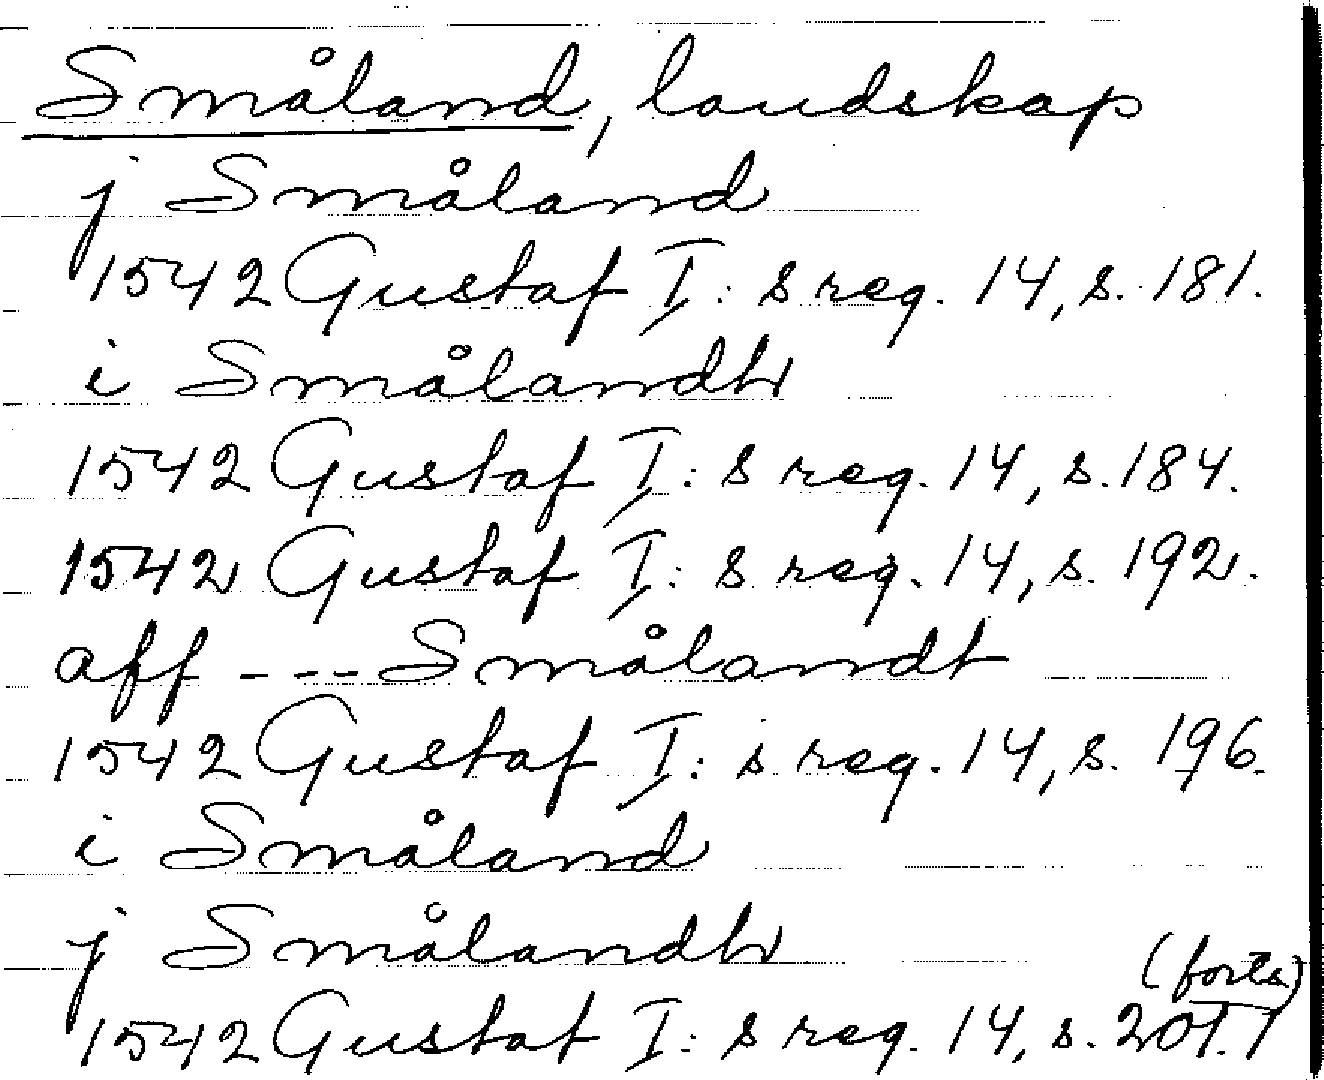 Småland, landskap
j Småland
1542 Gustaf I: s reg. 14, s. 181.
i Smålandh
1542 Gustaf I: s reg. 14, s. 184.
1542 Gustaf I: s reg. 14, s. 192.
aff --- Smålandt
1542 Gustaf I: s reg. 14, s. 196.
i Småland
j Smålandh
(forts)
1542 Gustaf I: s reg. 14, s. 201.